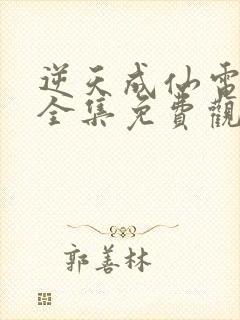 逆天成仙電
全集免費觀
郭善林